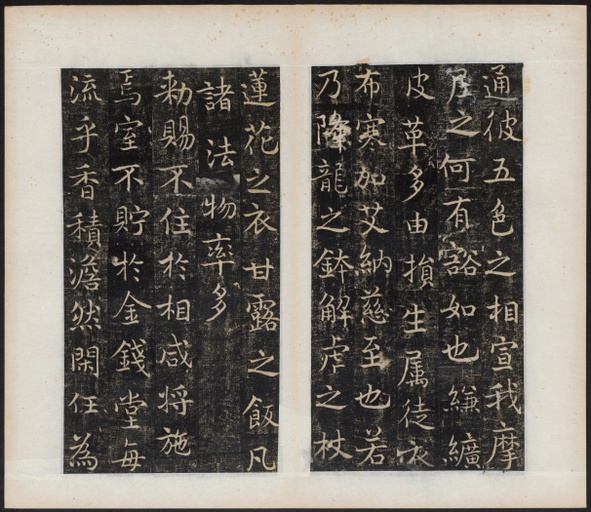 通彼五色之相宣我摩
尼之何有豁如也縑纊
皮革多由損生属徒衣
布寒加艾納慈至也若
乃降龍之鉢解虎之杖
蓮花之衣甘露之飯凡
諸法物率多
勑賜不住於相咸将施
焉室不貯於金錢堂每
流乎香積澹然閑任為